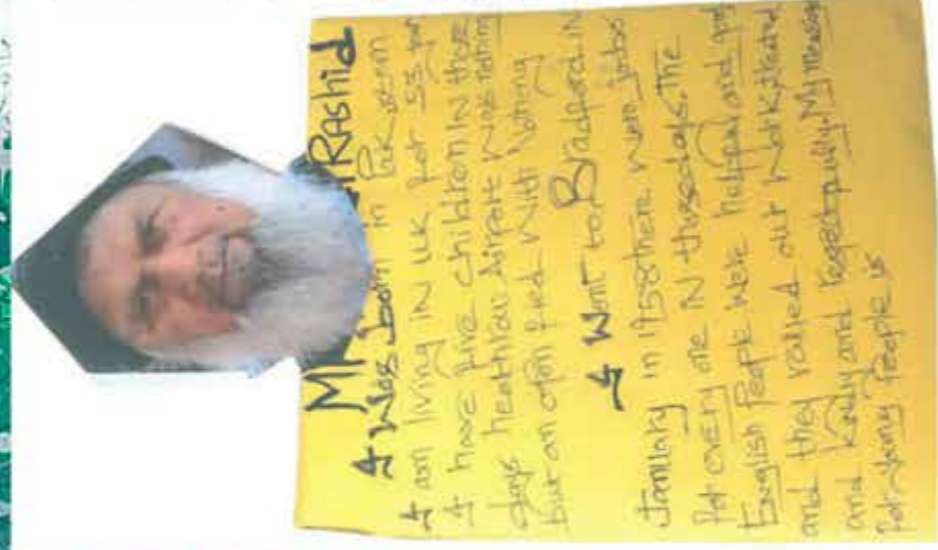 Mr Rashid
I was born in Pakistan
I am living in UK for 53 year
I have five children In those
days heathrow Airport was nothing
but an open field With Nothing
I Went to Bradford in
January in 1958 there were jobs
for every one IN those days. The
English People were helpful and
and they valued our work, treated
and kindly and respectfully. My message
for young People is